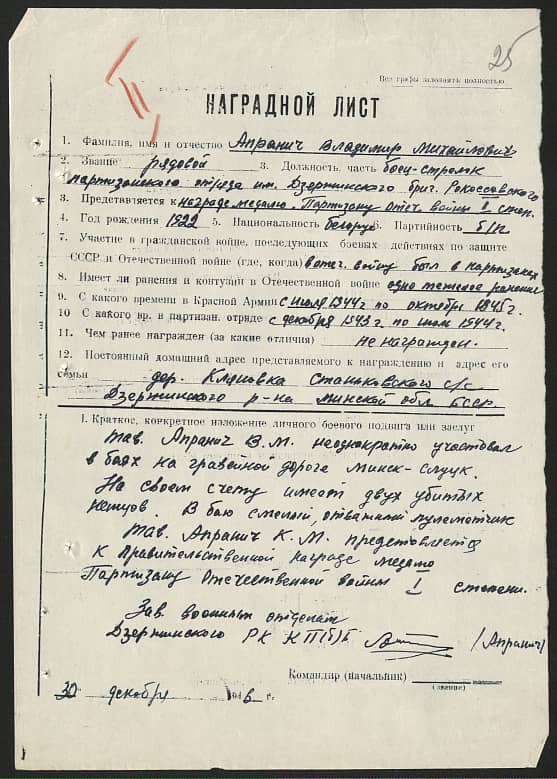 25
Все графы заполнять полностью
НАГРАДНОЙ ЛИСТ
1. Фамилия, имя и отчество Апранич Владимир Михайлович
2. Звание рядовой 3. Должность часть боец-стрелок
партизанского отряда им. Дзержинского бриг. Рокоссовского
3. Представляется к награде медалю „Партизану Отеч. войны I степ.
4. Год рождения 1922 5. Национальность белорус 6. Партийность б/п
7. Участие в гражданской войне, последующих боевых действиях по защите
СССР и Отечественной войне (где, когда) в отеч. войну был в партизанах
8. Имеет ли ранения и контузии в Отечественной войне одно тяжелое ранение
9. С какого времени в Красной Армии с июля 1944 г по октябрь 1945 г.
10 С какого вр. в партизан. отряде с декабря 1943 г. по июль 1944 г.
11. Чем ранее награжден (за какие отличия) не награжден.
12. Постоянный домашний адрес представляемого к награждению и адрес его
семьи дер. Кляновка Станьковского с/с
Дзержинского р-на Минской обл БССР.
I. Краткое, конкретное изложение личного боевого подвига или заслуг
тав. Апранич В. М. неоднократно участвовал
в боях на гравейной дороге Минск-Слуцк.
На своем счету имеет двух убитых
немцов. В бою смелый, отважный пулеметчик
Тав. Апранич К. М. представляется
к Правительственной награде медалю
Партизану Отечественной войны I степени.
Зав. военным отделам
Дзержинского РК КП(б)Б /Апранич/
Командир (начальник)
(звание)
30 декабря 1946 г.